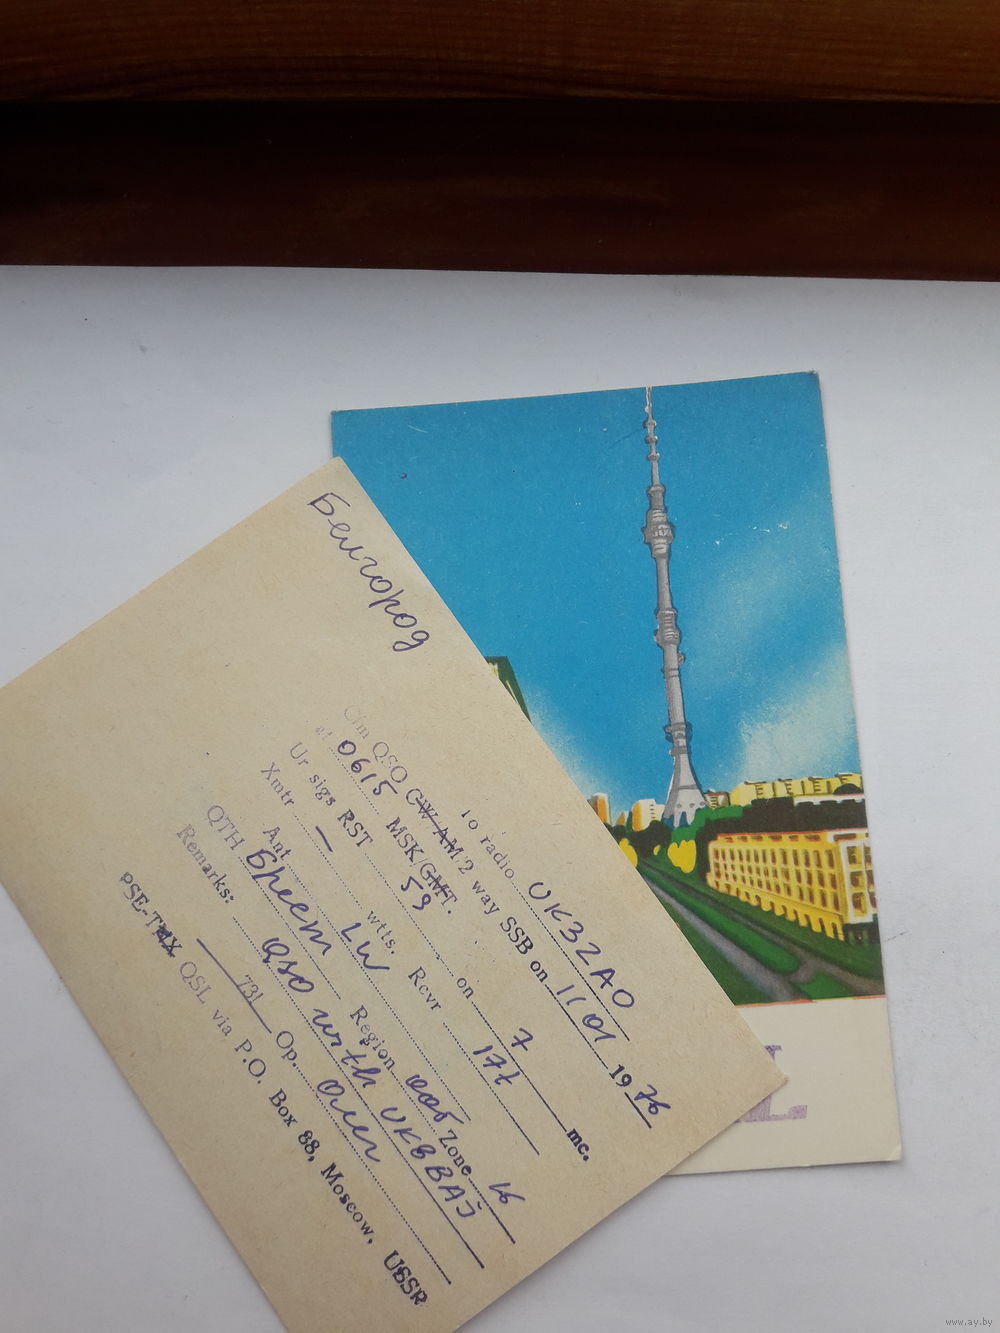 Белгород
To radio UK3ZAO
Cfm QSO CW AM 2 way SSB on 11/01 1976
at 0615 MSK/GMT.
Ur sigs RST 59 on 7 mc.
Xmtr — wtts. Rcvr 17t
Ant LW
QTH Брест Region 006 Zone 16
Remarks: QSO with UK8BAJ
731 Op. Олег
PSE-TNX QSL via P.O. Box 88, Moscow, USSR
L
www.ay.by